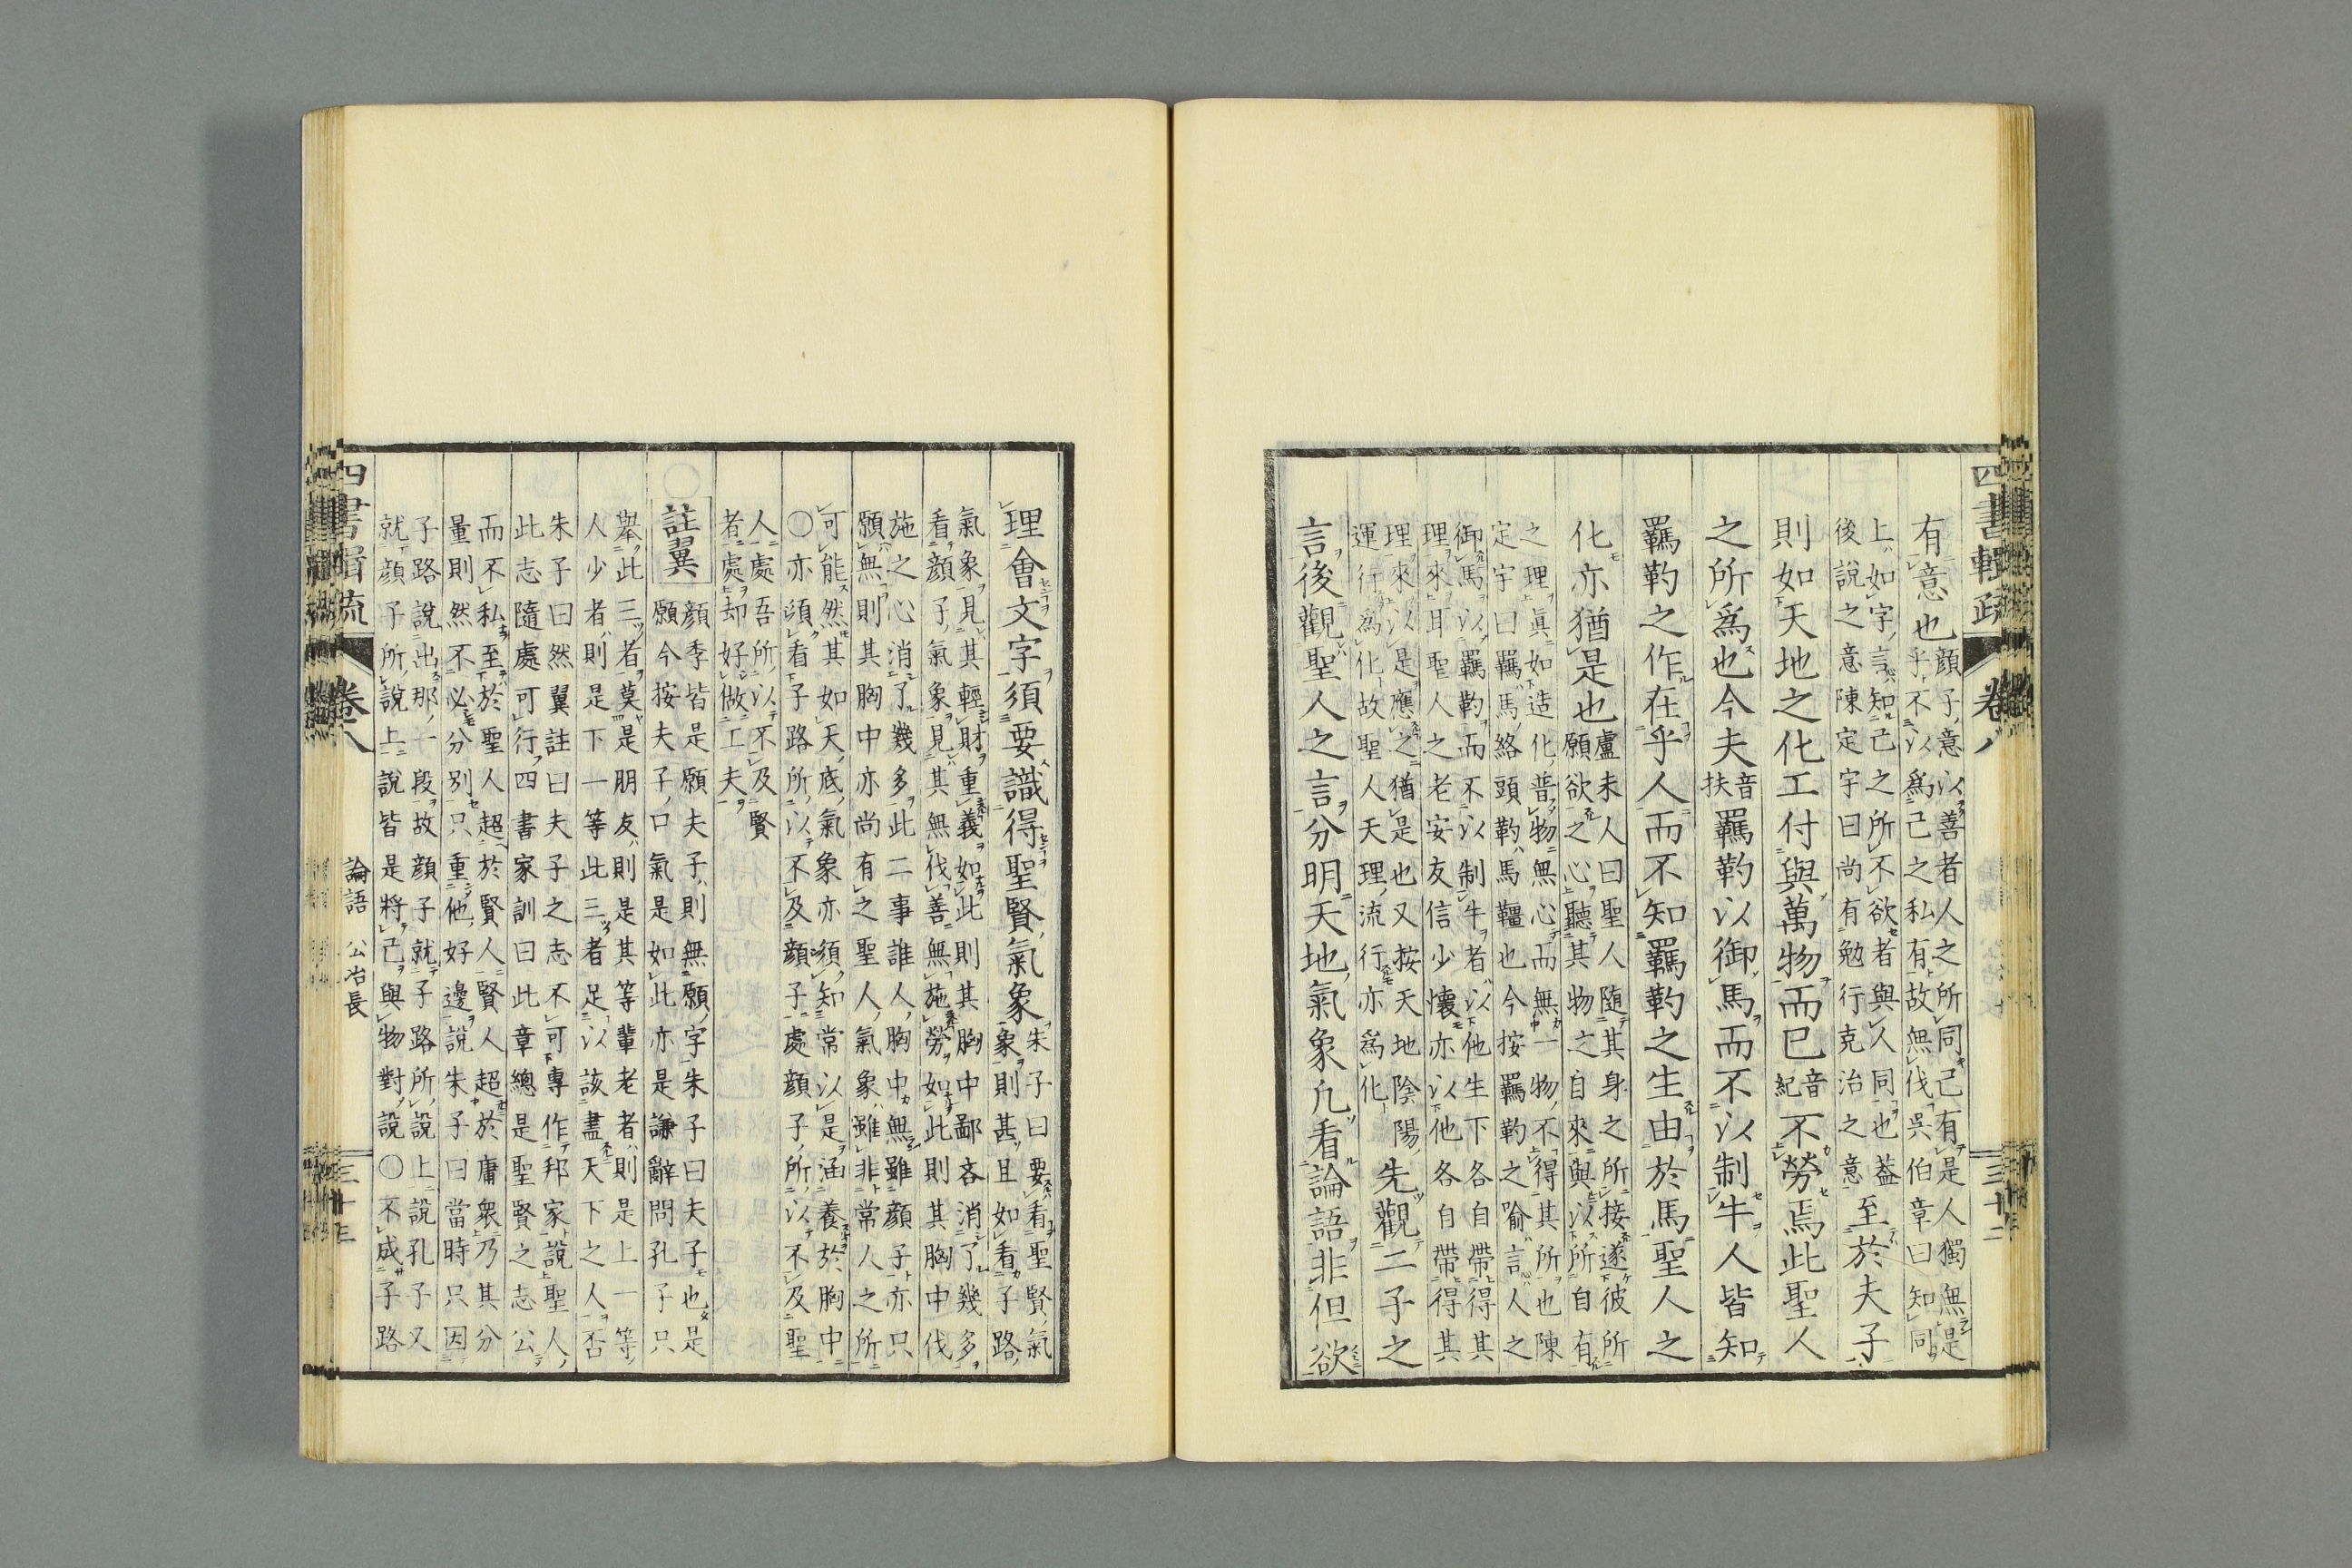 四書輯疏 卷八 三十二
有意也
顔子意以善者人之所同己有是人獨無是
乎不以爲己之私有故無伐吳伯章曰知同
上如字言知己之所不欲者與人同也蓋
後說之意陳定宇曰尚有勉行克治之意
至於夫子
則如天地之化工付與萬物而已音紀不勞焉此聖人
之所爲也今夫音扶羈靮以御馬而不以制牛人皆知
羈靮之作在乎人而不知羈靮之生由於馬聖人之
化亦猶是也
盧未人曰聖人隨其身之所接遂彼所
願欲之心聽其物之自來與以所自有
之理眞如造化普物無心而無一物不得其所也陳
定宇曰羈馬絡頭靮馬韁也今按羈靮之喻言人之
御馬以羈靮而不以制牛者以他生下各自帶得其
理來耳聖人之老安友信少懷亦以他各自帶得其
理來以是應之猶是也又按天地陰陽
運行爲化故聖人天理流行亦爲化
先觀二子之
言後觀聖人之言分明天地氣象凡看論語非但欲
理會文字須要識得聖賢氣象
朱子曰要看聖賢氣
象則甚且如看子路
氣象見其輕財重義如此則其胸中鄙吝消了幾多
看顔子氣象見其無伐善無施勞如此則其胸中伐
施之心消了幾多此二事誰人胸中無雖顔子亦只
願無則其胸中亦尚有之聖人氣象雖非常人之所
可能然其如天底氣象亦須知常以是涵養於胸中
○亦須看子路所以不及顔子處顔子所以不及聖
人處吾所以不及賢
者處却好做工夫
○註翼
顔季皆是願夫子則無願字朱子曰夫子也是
願今按夫子口氣是如此亦是謙辭問孔子只
舉此三者莫是朋友則是其等輩老者則是上一等
人少者則是下一等此三者足以該盡天下之人否
朱子曰然翼註曰夫子之志不可專作邦家說聖人
此志隨處可行四書家訓曰此章總是聖賢之志公
而不私至於聖人超於賢人賢人超於庸衆乃其分
量則然不必分別只重他好邊說朱子曰當時只因
子路說出那一段故顔子就子路所說上說孔子又
就顔子所說上說皆是將己與物對說○不成子路
四書輯疏 卷八 論語 公冶長 三十三